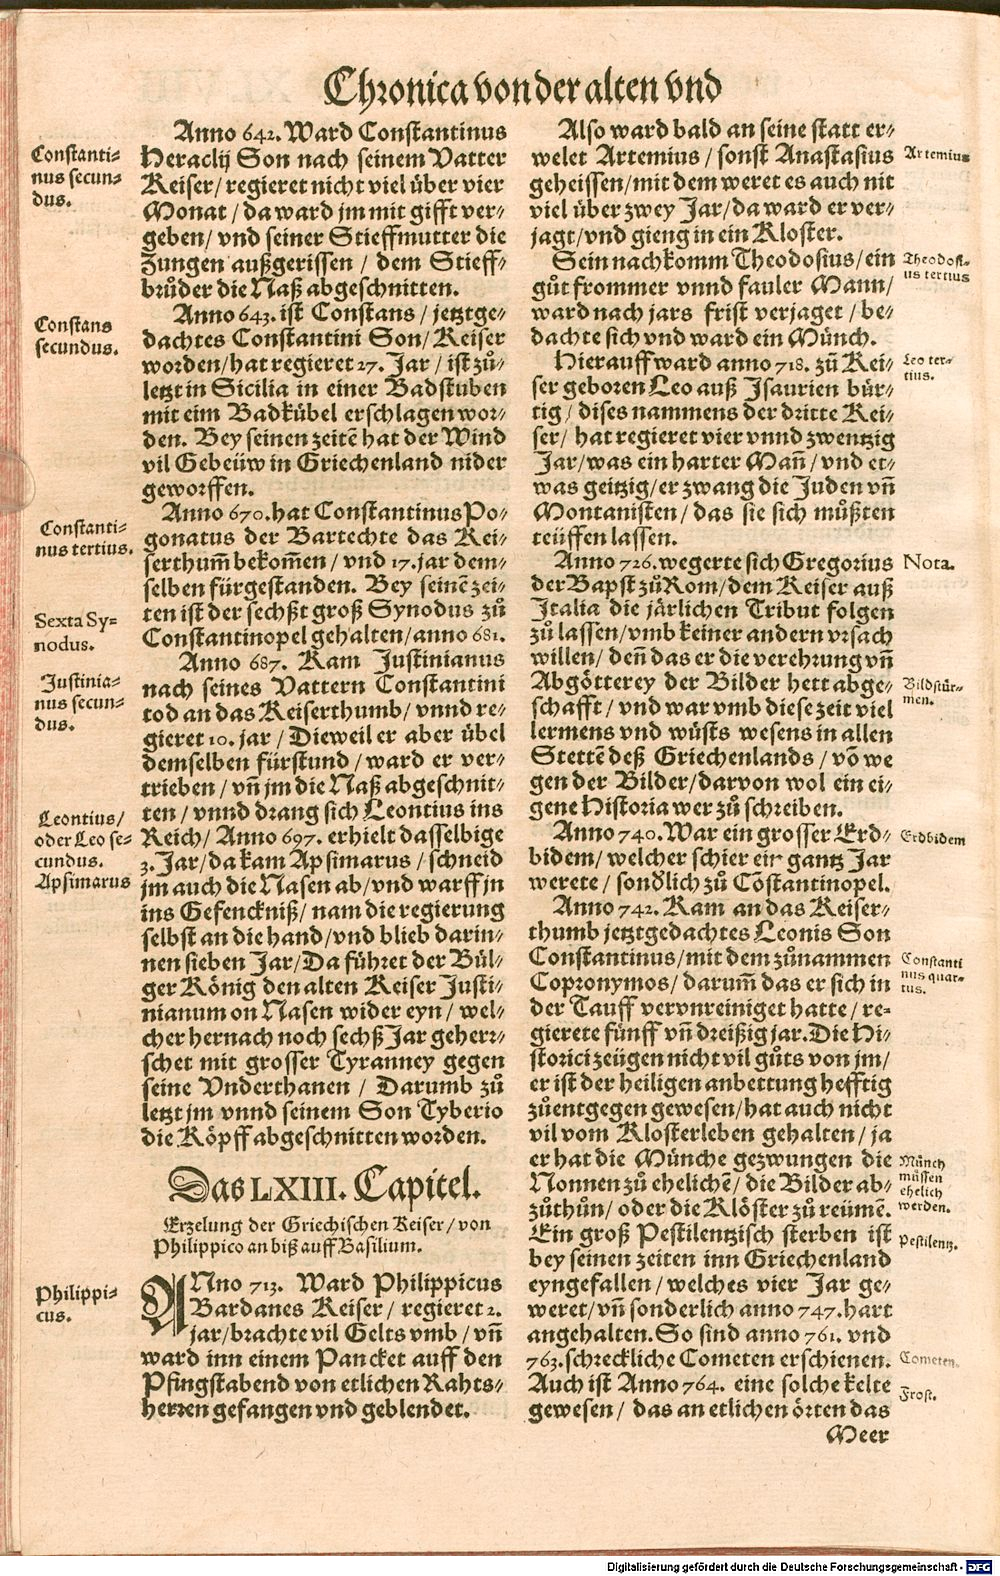 Chronica von der alten vnd
Constanti⸗
nus secun⸗
dus.
Anno 642. Ward Constantinus
Heraclij Son nach seinem Vatter
Keiser/ regieret nicht viel über vier
Monat/ da ward jm mit gifft ver⸗
geben/ vnd seiner Stieffmutter die
Zungen außgerissen/ dem Stieff⸗
brůder die Naß abgeschnitten.
Constans
secundus.
Anno 643. ist Constans/ jetztge⸗
dachtes Constantini Son/ Keiser
worden/ hat regieret 27. Jar/ ist zů⸗
letzt in Sicilia in einer Badstuben
mit eim Badkübel erschlagen wor⸗
den. Bey seinen zeitẽ hat der Wind
vil Gebeüw in Griechenland nider
geworffen.
Constanti⸗
nus tertius.
Anno 670. hat Constantinus Po⸗
gonatus der Bartechte das Kei⸗
serthum̃ bekom̃en/ vnd 17. jar dem⸗
selben fürgestanden. Bey seinẽ zei⸗
Sexta Sy⸗
nodus.
ten ist der sechßt groß Synodus zů
Constantinopel gehalten/ anno 681.
Justinia⸗
nus secun⸗
dus.
Anno 687. Kam Justinianus
nach seines Vattern Constantini
tod an das Keiserthumb/ vnnd re⸗
gieret 10. jar/ Dieweil er aber übel
demselben fürstund/ ward er ver⸗
trieben/ vñ jm die Naß abgeschnit⸗
Leontius/
oder Leo se⸗
cundus.
Apsimarus
ten/ vnnd drang sich Leontius ins
Reich/ Anno 697. erhielt dasselbige
3. Jar/ da kam Apsimarus/ schneid
jm auch die Nasen ab/ vnd warff jn
ins Gefenckniß/ nam die regierung
selbst an die hand/ vnd blieb darin⸗
nen sieben Jar/ Da führet der Bül⸗
ger König den alten Keiser Justi⸗
nianum on Nasen wider eyn/ wel⸗
cher hernach noch sechß Jar geherr⸗
schet mit grosser Tyranney gegen
seine Vnderthanen/ Darumb zů
letzt jm vnnd seinem Son Tyberio
die Köpff abgeschnitten worden.
Das LXIII. Capitel.
Erzelung der Griechischen Keiser/ von
Philippico an biß auff Basilium.
Philippi⸗
cus.
ANno 713. Ward Philippicus
Bardanes Keiser/ regieret 2.
jar/ brachte vil Gelts vmb/ vñ
ward inn einem Pancket auff den
Pfingstabend von etlichen Rahts⸗
herren gefangen vnd geblendet.
Also ward bald an seine statt er⸗
welet Artemius/ sonst Anastasius
Artemius
geheissen/ mit dem weret es auch nit
viel über zwey Jar/ da ward er ver⸗
jagt/ vnd gieng in ein Kloster.
Sein nachkomm Theodosius/ ein
Theodosi⸗
us tertius
gůt frommer vnnd fauler Mann/
ward nach jars frist verjaget/ be⸗
dachte sich vnd ward ein Münch.
Hierauff ward anno 718. zů Kei⸗
Leo ter⸗
tius.
ser geboren Leo auß Isaurien bür⸗
tig/ dises nammens der dritte Kei⸗
ser/ hat regieret vier vnnd zwentzig
Jar/ was ein harter Mañ/ vnd et⸗
was geitzig/ er zwang die Juden vñ
Montanisten/ das sie sich můßten
teüffen lassen.
Anno 726. wegerte sich Gregorius
Nota.
der Bapst zů Rom/ dem Keiser auß
Italia die järlichen Tribut folgen
zů lassen/ vmb keiner andern vrsach
willen/ deñ das er die verehrung vñ
Abgötterey der Bilder hett abge⸗
Bildstür⸗
men.
schafft/ vnd war vmb diese zeit viel
lermens vnd wüsts wesens in allen
Stettẽ deß Griechenlands/ võ we
gen der Bilder/ darvon wol ein ei⸗
gene Historia wer zů schreiben.
Anno 740. War ein grosser Erd⸗
Erdbidem
bidem/ welcher schier ein gantz Jar
werete/ sonðlich zů Cõstantinopel.
Anno 742. Kam an das Keiser⸗
thumb jetztgedachtes Leonis Son
Constantinus/ mit dem zůnammen
Constanti
nus quar⸗
tus.
Copronymos/ darum̃ das er sich in
der Tauff vervnreiniget hatte/ re⸗
gierete fünff vñ dreißig jar. Die Hi⸗
storici zeügen nicht vil gůts von jm/
er ist der heiligen anbettung hefftig
zůentgegen gewesen/ hat auch nicht
vil vom Klosterleben gehalten/ ja
er hat die Münche gezwungen die
Münch
müssen
ehelich
werden.
Nonnen zů ehelichẽ/ die Bilder ab⸗
zůthůn/ oder die Klöster zů reümẽ.
Ein groß Pestilentzisch sterben ist
Pestilentz.
bey seinen zeiten inn Griechenland
eyngefallen/ welches vier Jar ge⸗
weret/ vñ sonderlich anno 747. hart
angehalten. So sind anno 761. vnd
763. schreckliche Cometen erschienen.
Cometen.
Auch ist Anno 764. eine solche kelte
Frost.
gewesen/ das an etlichen örten das
Meer
Digitalisierung gefördert durch die Deutsche Forschungsgemeinschaft - DFG